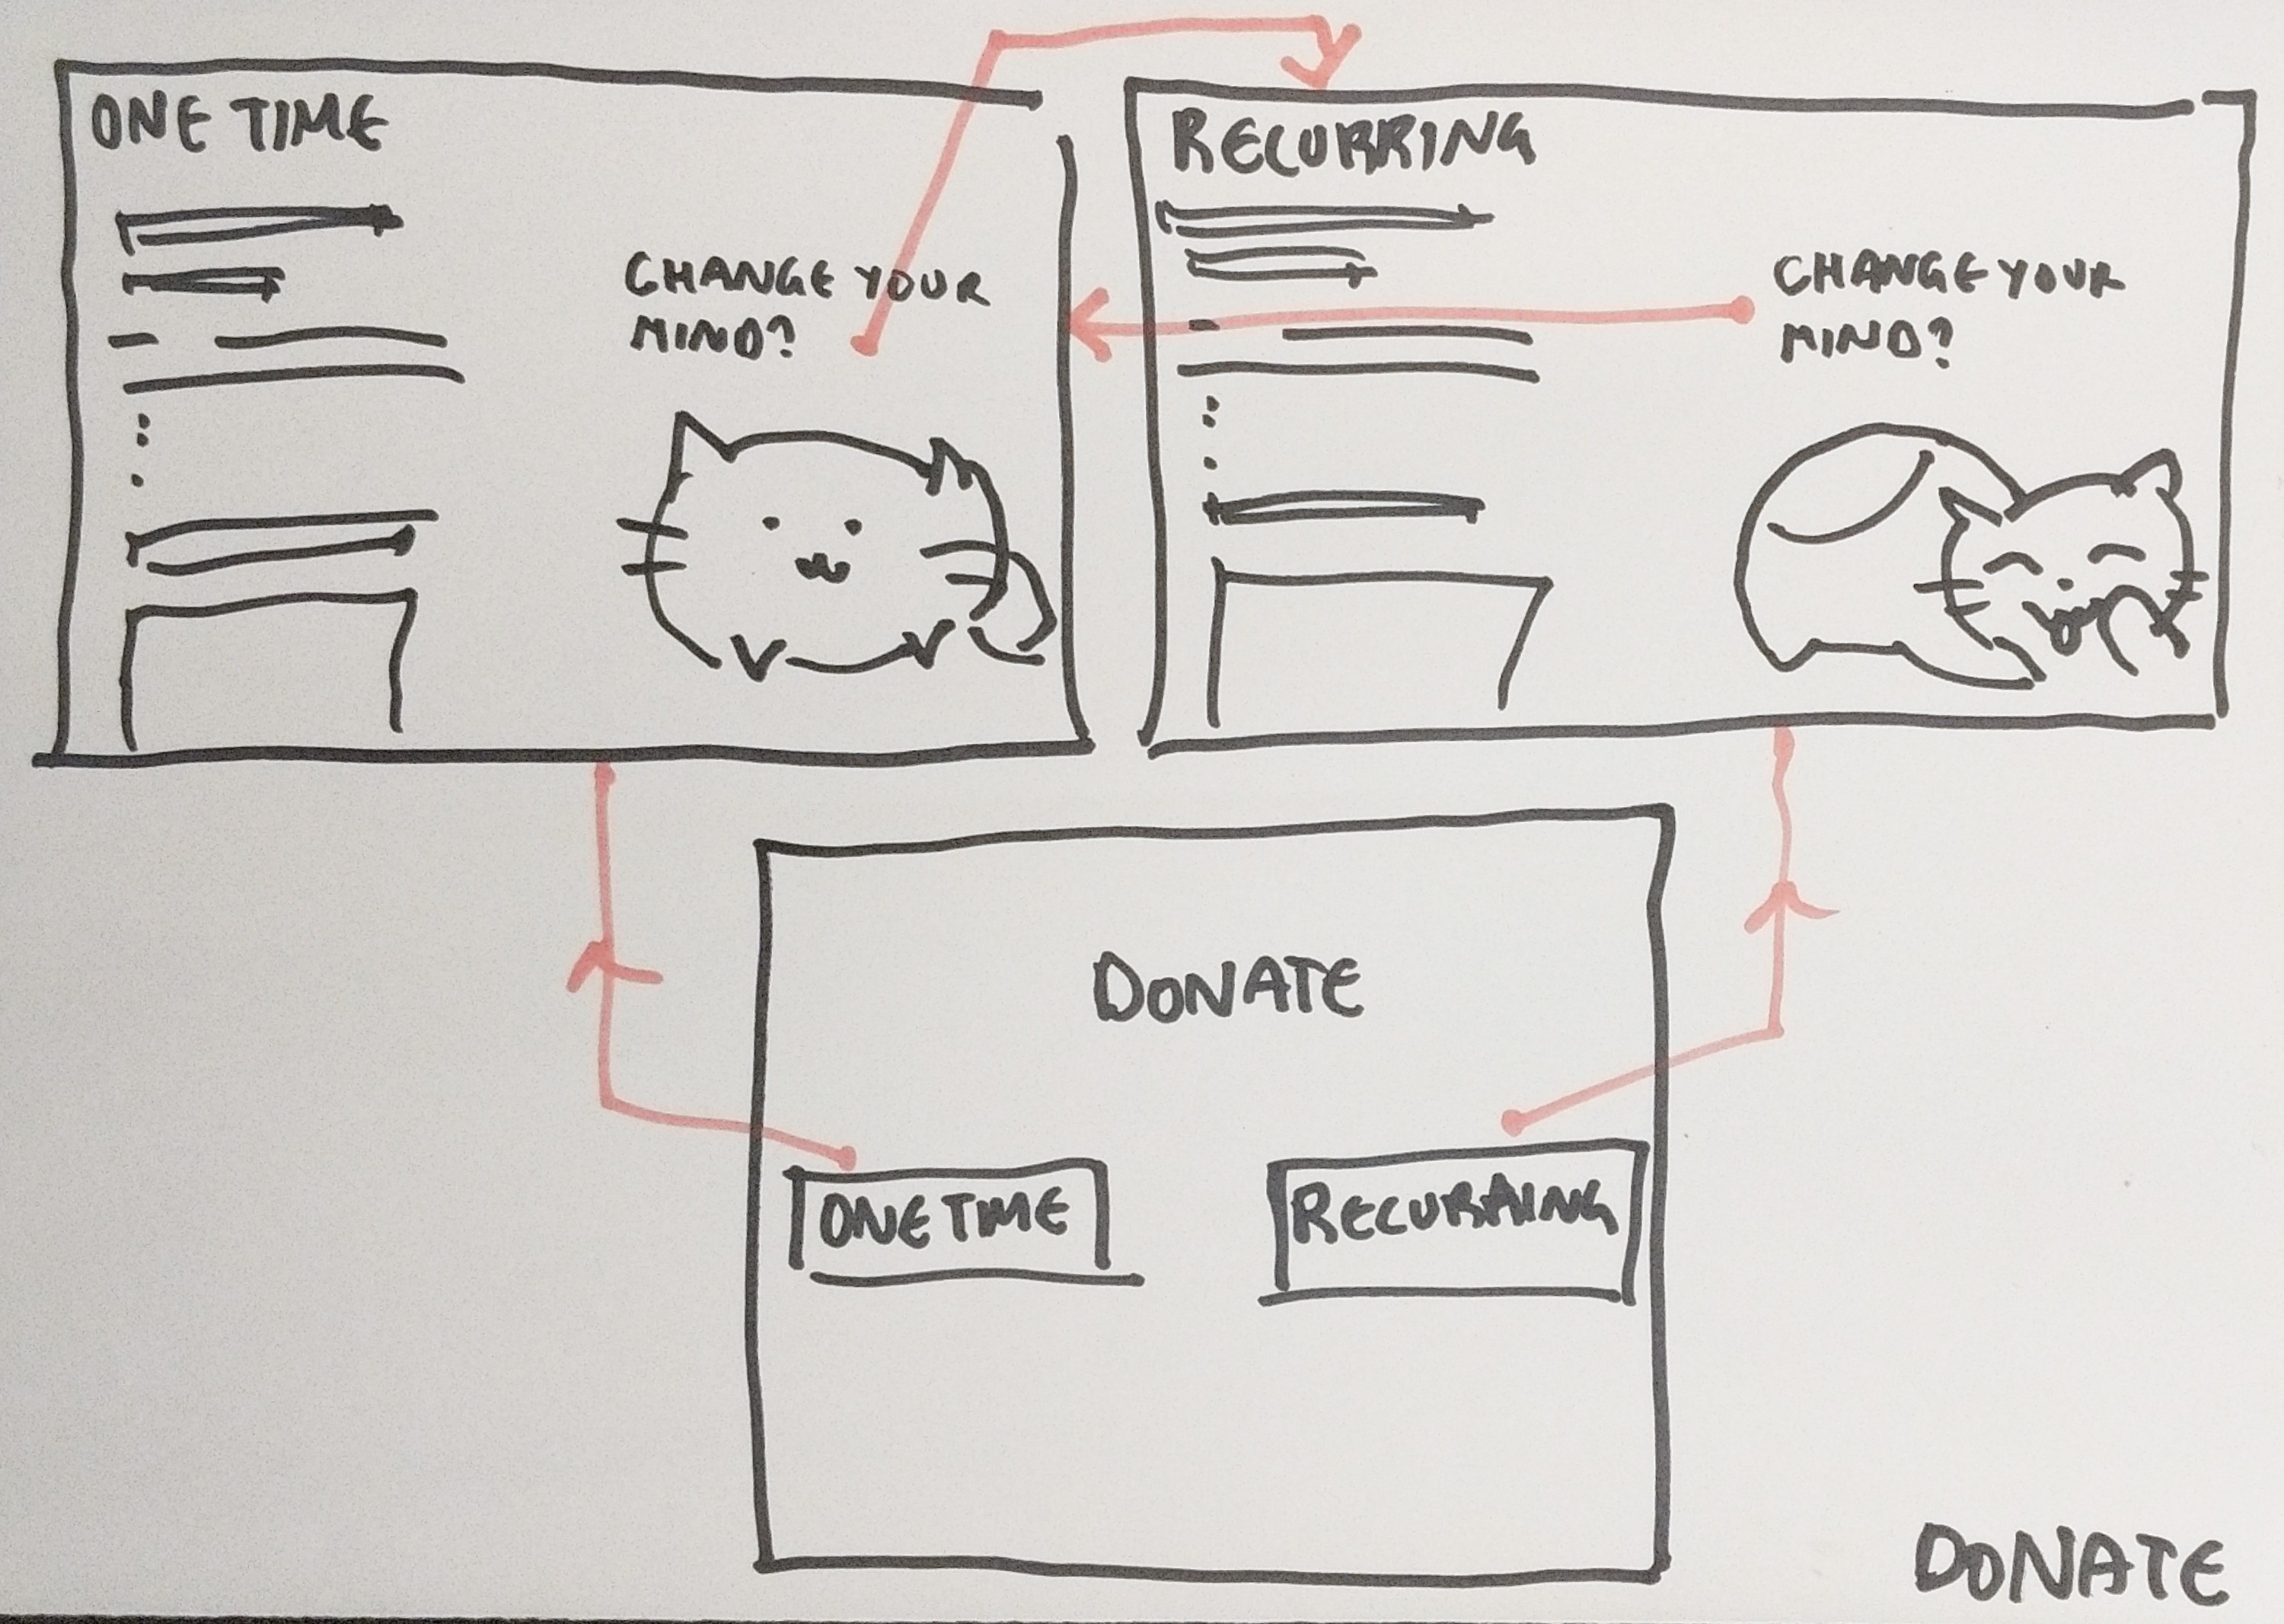 ONE TIME
CHANGE YOUR
MIND?
RECURRING
CHANGE YOUR
MIND?
DONATE
ONE TIME
RECURRING
DONATE